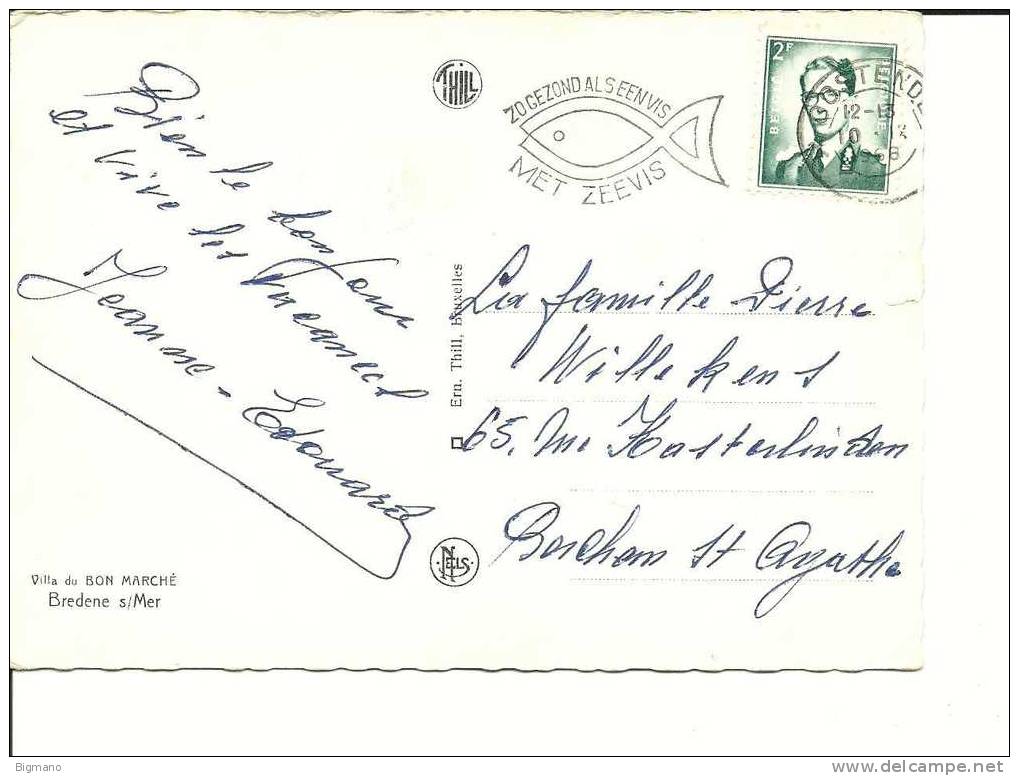 Bien le bonjour
et vive les vacances
Jeanne - Edouard
Villa du BON MARCHÉ
Bredene s/Mer
THILL
ZO GEZOND ALS EEN VIS
MET ZEEVIS
2F
OOSTENDE
12-13
10
1968
Ern. Thill, Bruxelles
NELS
La famille Pierre
Willekens
65, rue Kasterlinden
Berchem St Agathe
Bigmano
www.delcampe.net